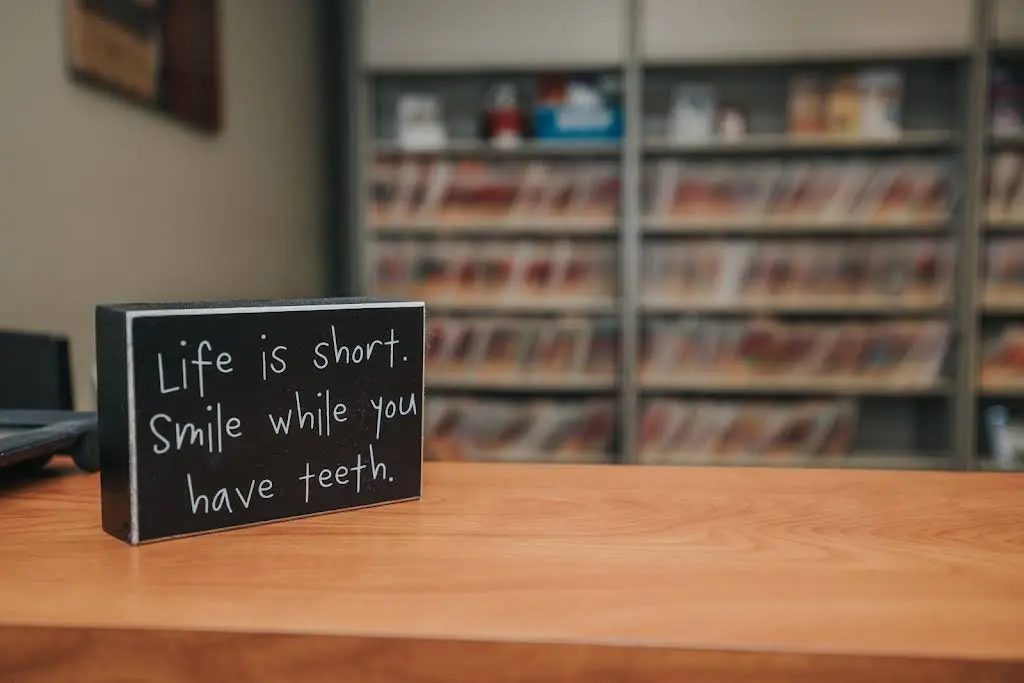 Life is short.
Smile while you
have teeth.